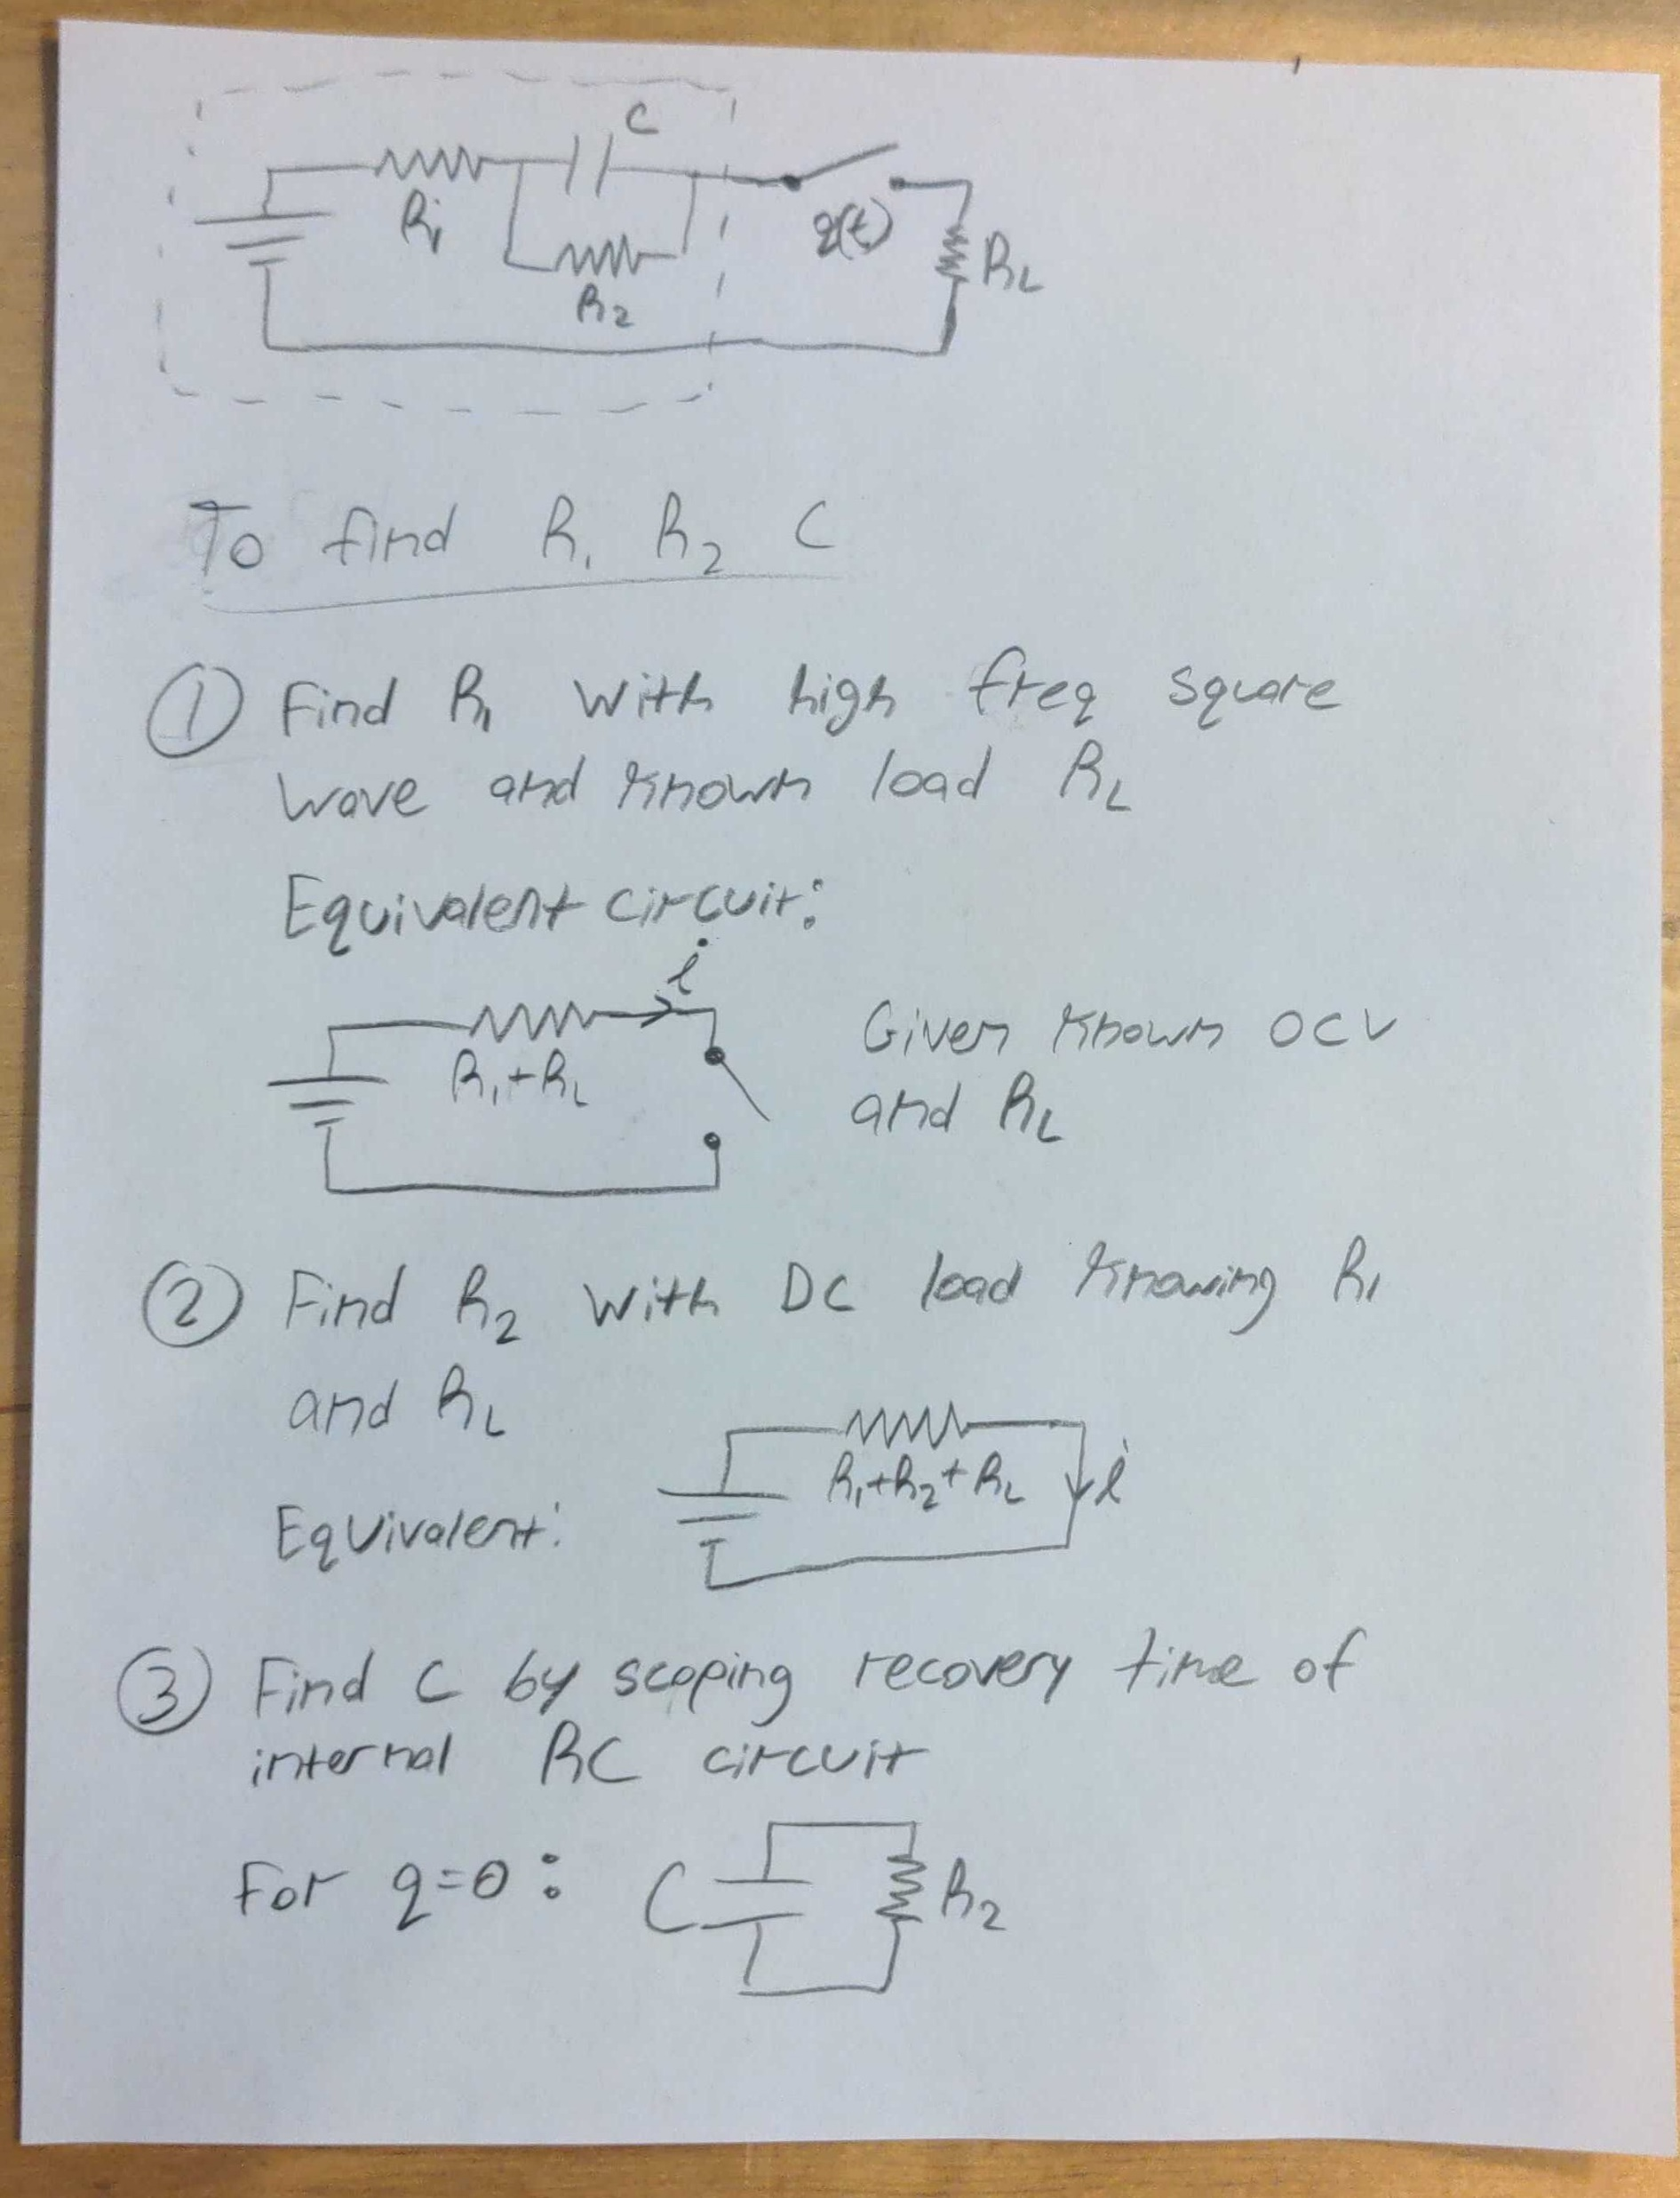 C
R1
R2
q(t)
RL
To find R1 R2 C
① Find R1 with high freq square
wave and known load RL
Equivalent circuit:
i
R1+RL
Given known OCV
and RL
② Find R2 with DC load knowing R1
and RL
R1+R2+RL
i
Equivalent:
③ Find C by scoping recovery time of
internal RC circuit
For q=0:
C
R2